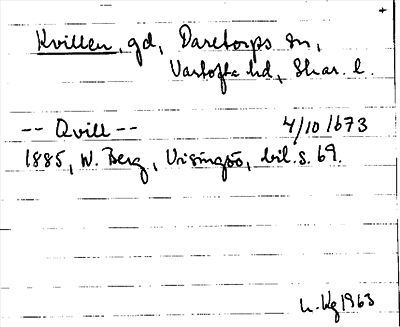 +
Kvillen, gd, Daretorps sn,
Vartofta hd, Skar. l.
-- Qvill -- 4/10 1673
1885, W. Berg, Visingsö, bil. s. 69.
1963